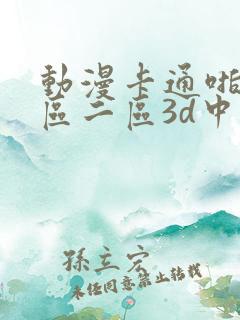 動漫卡通啪
區二區3d中
孫立宏
未任同意禁止转载